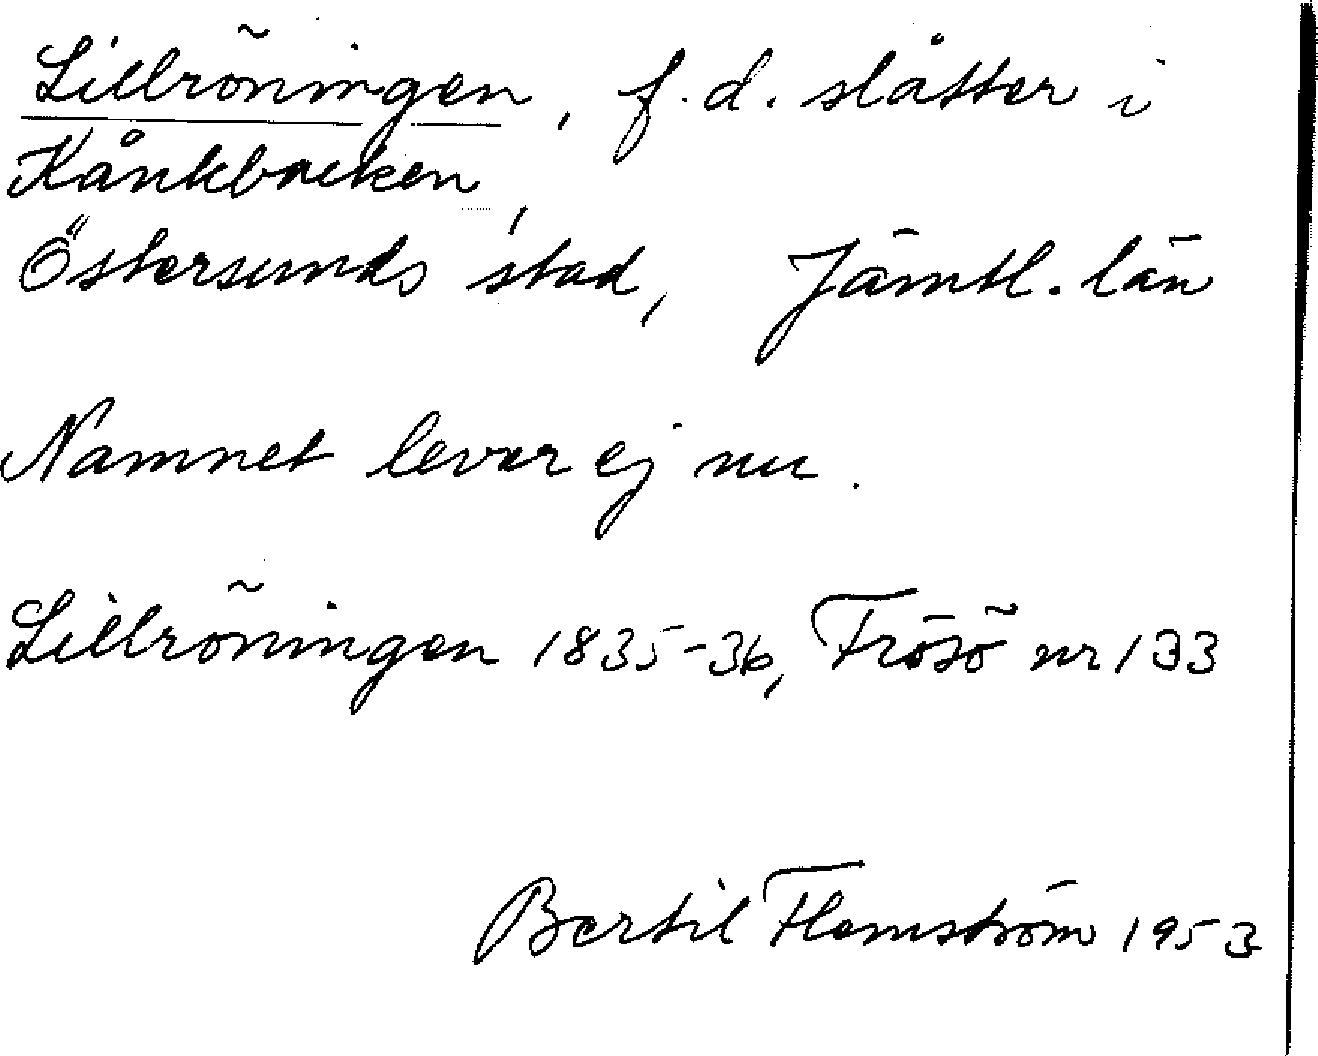 Lillröningen, f.d. slåtter i
Kånkbacken,
Östersunds stad, Jämtl. län
Namnet lever ej nu.
Lillröningen 1835-36, Frösö nr 133
Bertil Flemström 1953